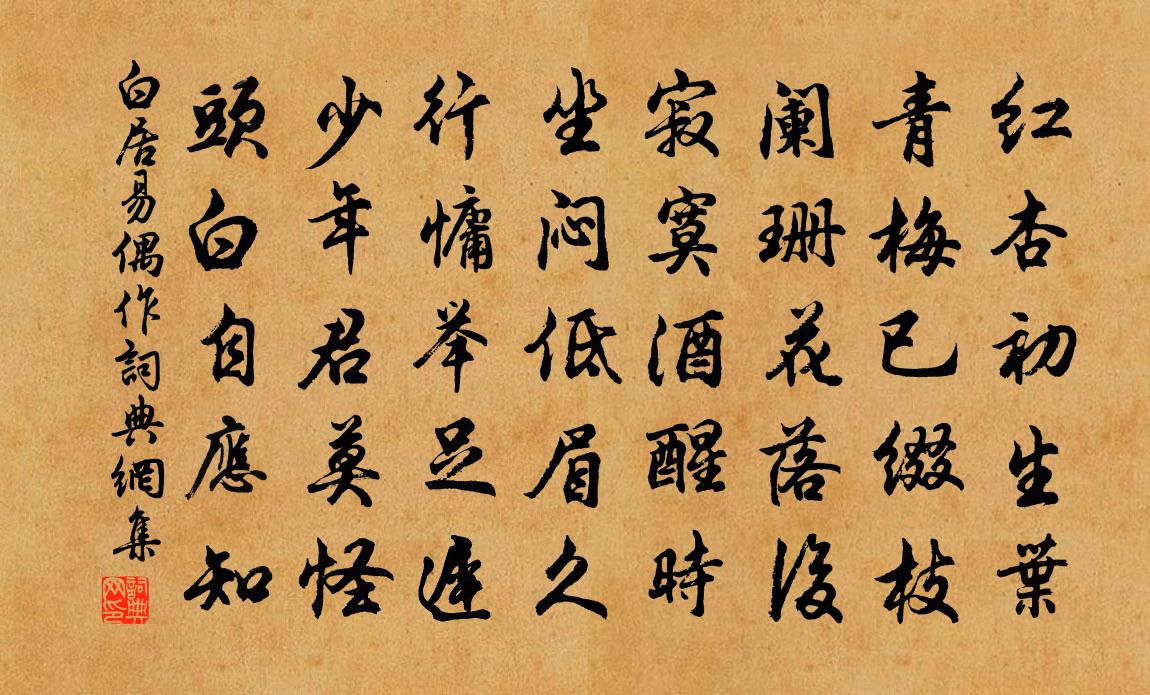 红杏初生葉
青梅已缀枝
阑珊花落後
寂寞酒醒時
坐闷低眉久
行慵举足遅
少年君莫怪
頭白自應知
白居易偶作詞典網集
詞典
网印